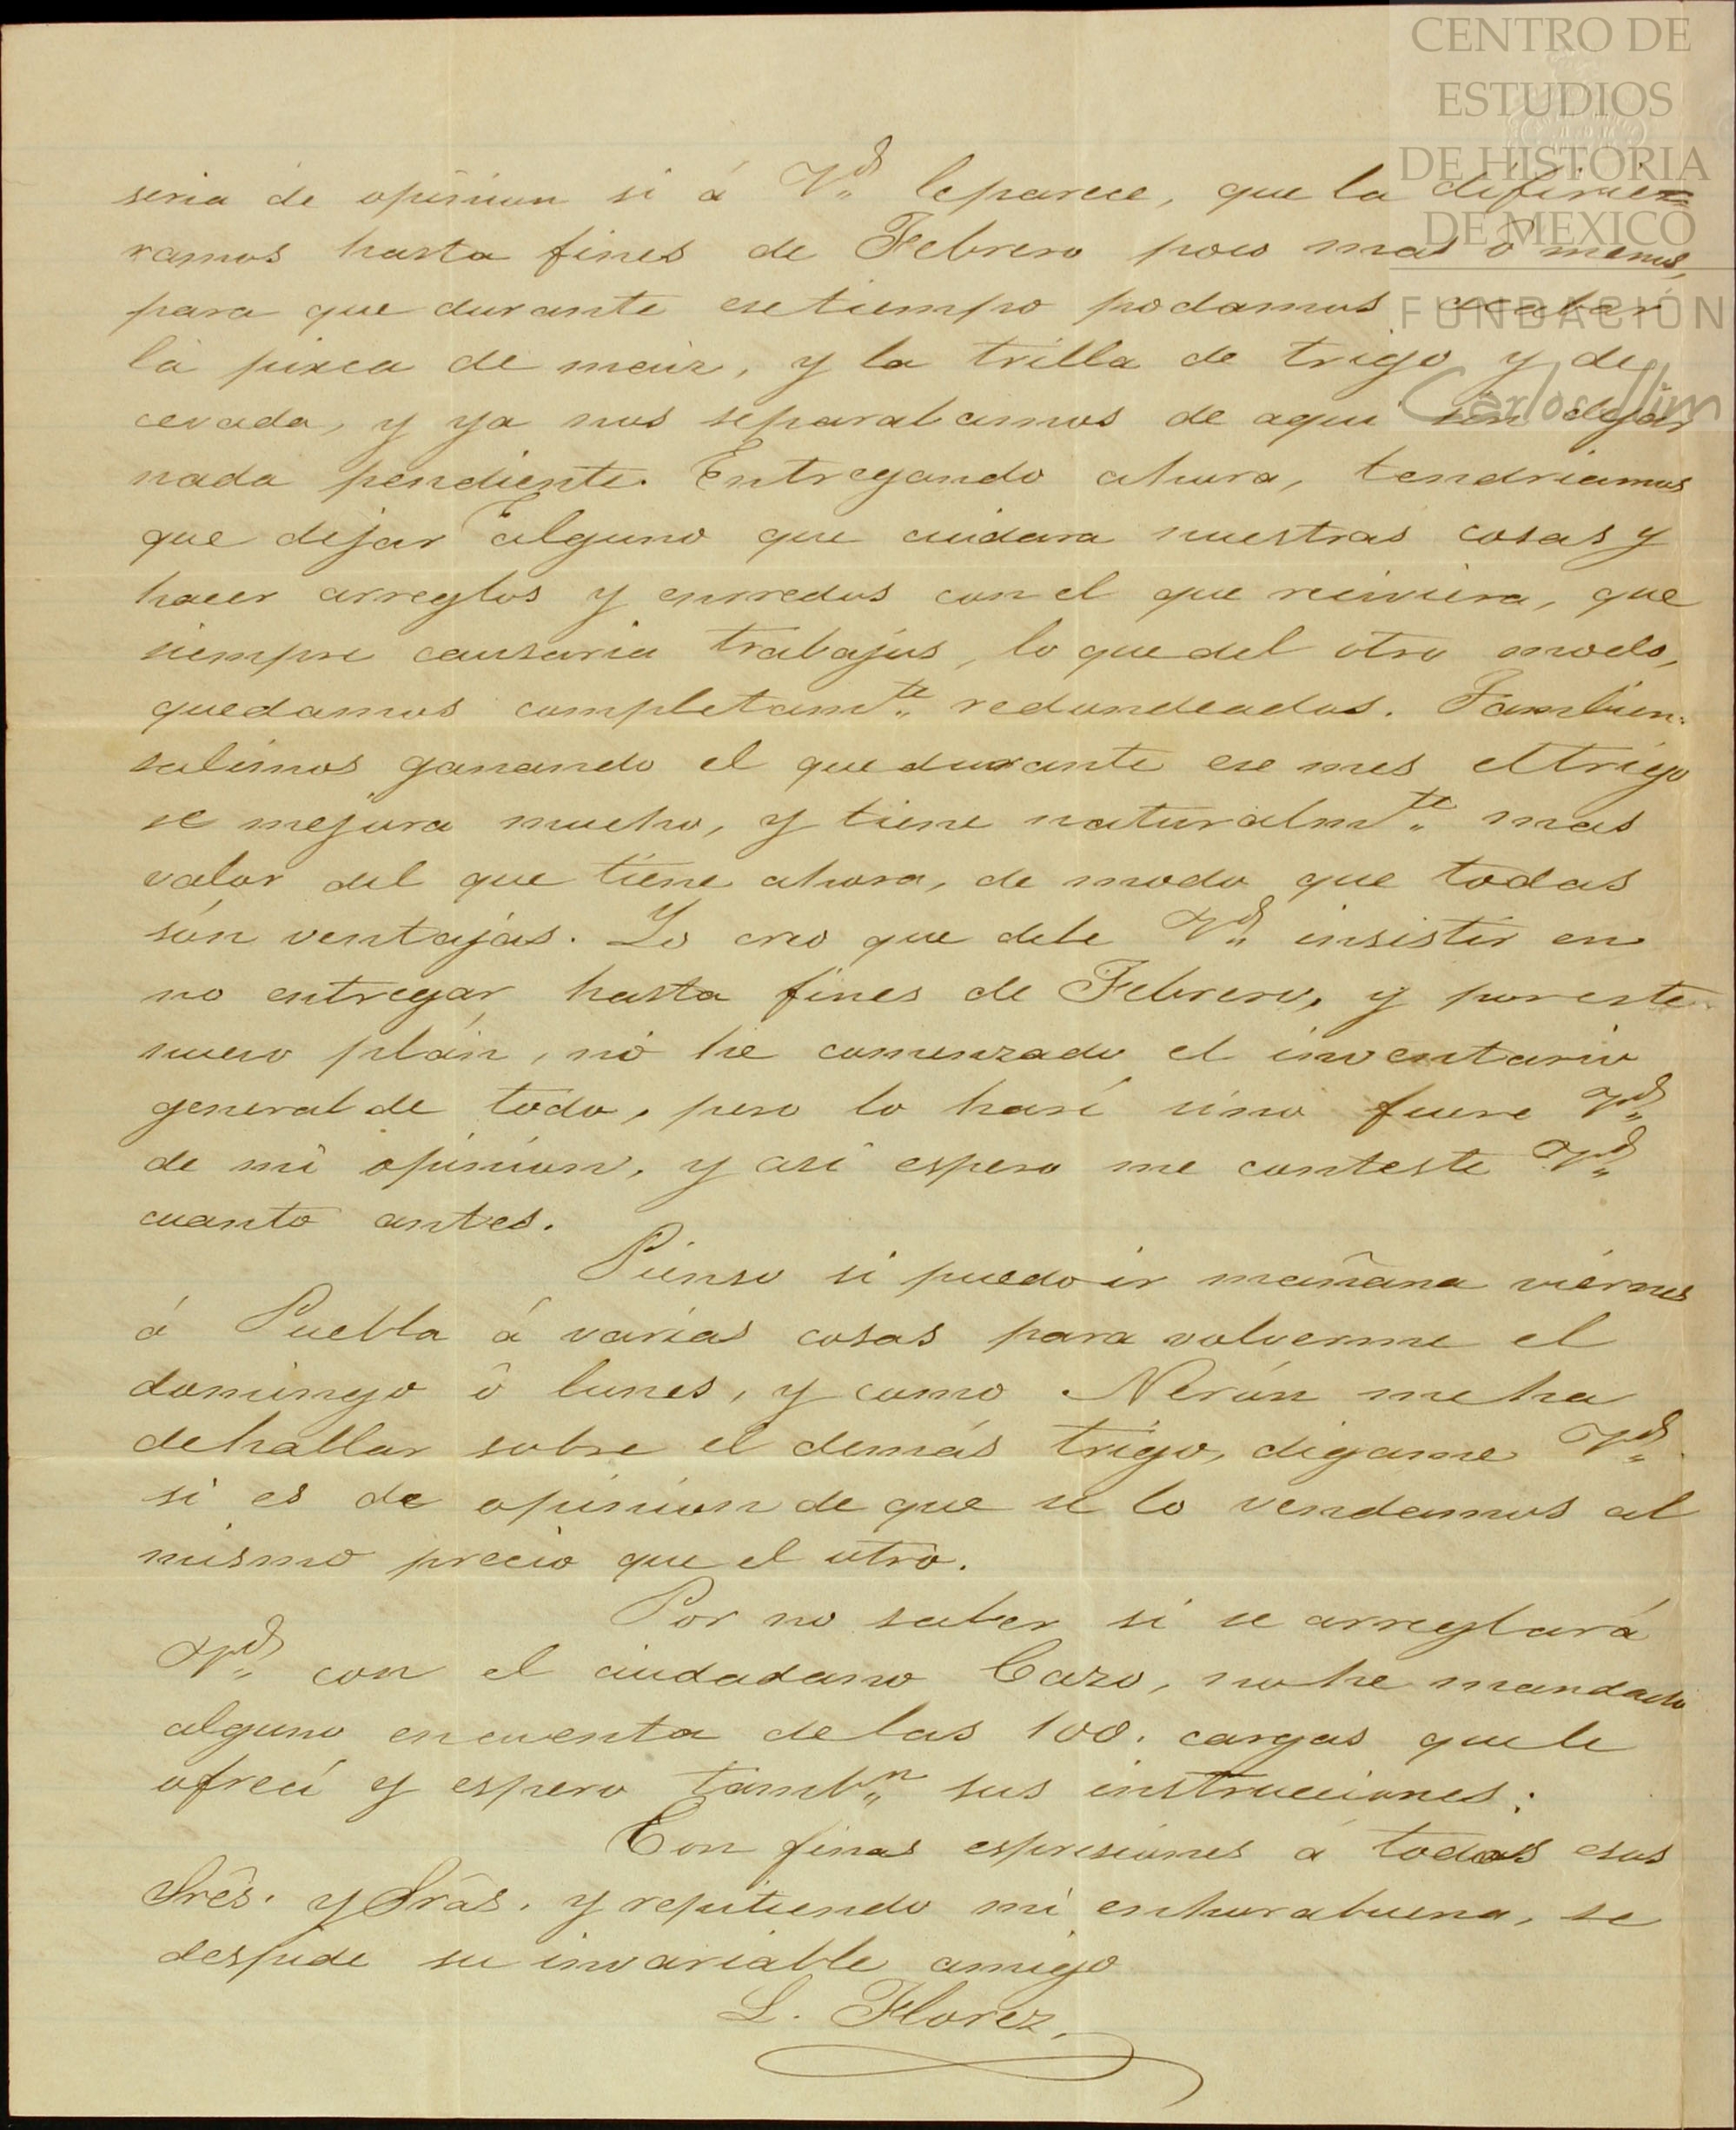 CENTRO DE
ESTUDIOS
DE HISTORIA
DE MEXICO
FUNDACIÓN
Carlos Slim
seria de opinion si á Vd. le parece, que la difirie=
ramos hasta fines de Febrero poco mas ó menos,
para que durante ese tiempo podamos acabar
la pixca de maiz, y la trilla de trigo y de
cevada, y ya nos separabamos de aqui sin dejar
nada pendiente. Entregando ahora, tendriamos
que dejar alguno que cuidara nuestras cosas y
hacer arreglos y enrredos con el que reciviera, que
siempre causaria trabajos, lo que del otro modo,
quedamos completamte. redondeados. Tambien
salimos ganando el que durante ese mes el trigo
se mejora mucho, y tiene naturalmte. mas
valor del que tiene ahora, de modo que todas
són ventajas. Yo creo que debe Vd. insistir en
no entregar hasta fines de Febrero, y por este
nuevo plán, nó he comenzado el inventario
general de todo, pero lo haré sino fuere Vd.
de mi opinion, y asi espero me conteste Vd.
cuanto antes.
Pienso si puedo ir mañana viérnes
á Puebla á varias cosas para volverme el
domingo ó lunes, y como Nerón me ha
de hablar sobre el demás trigo, digame Vd.
si es de opinion de que se lo vendamos al
mismo precio que el otro.
Por no saber si se arreglará
Vd. con el ciudadano Cazo, no he mandado
alguno en cuenta de las 100. cargas que le
ofrecí y espero tambn. sus instrucciones.
Con finas espresiones á todos esos
Srês. y Srâs. y repitiendo mi enhorabuena, se
despide su invariable amigo
L. Florez.